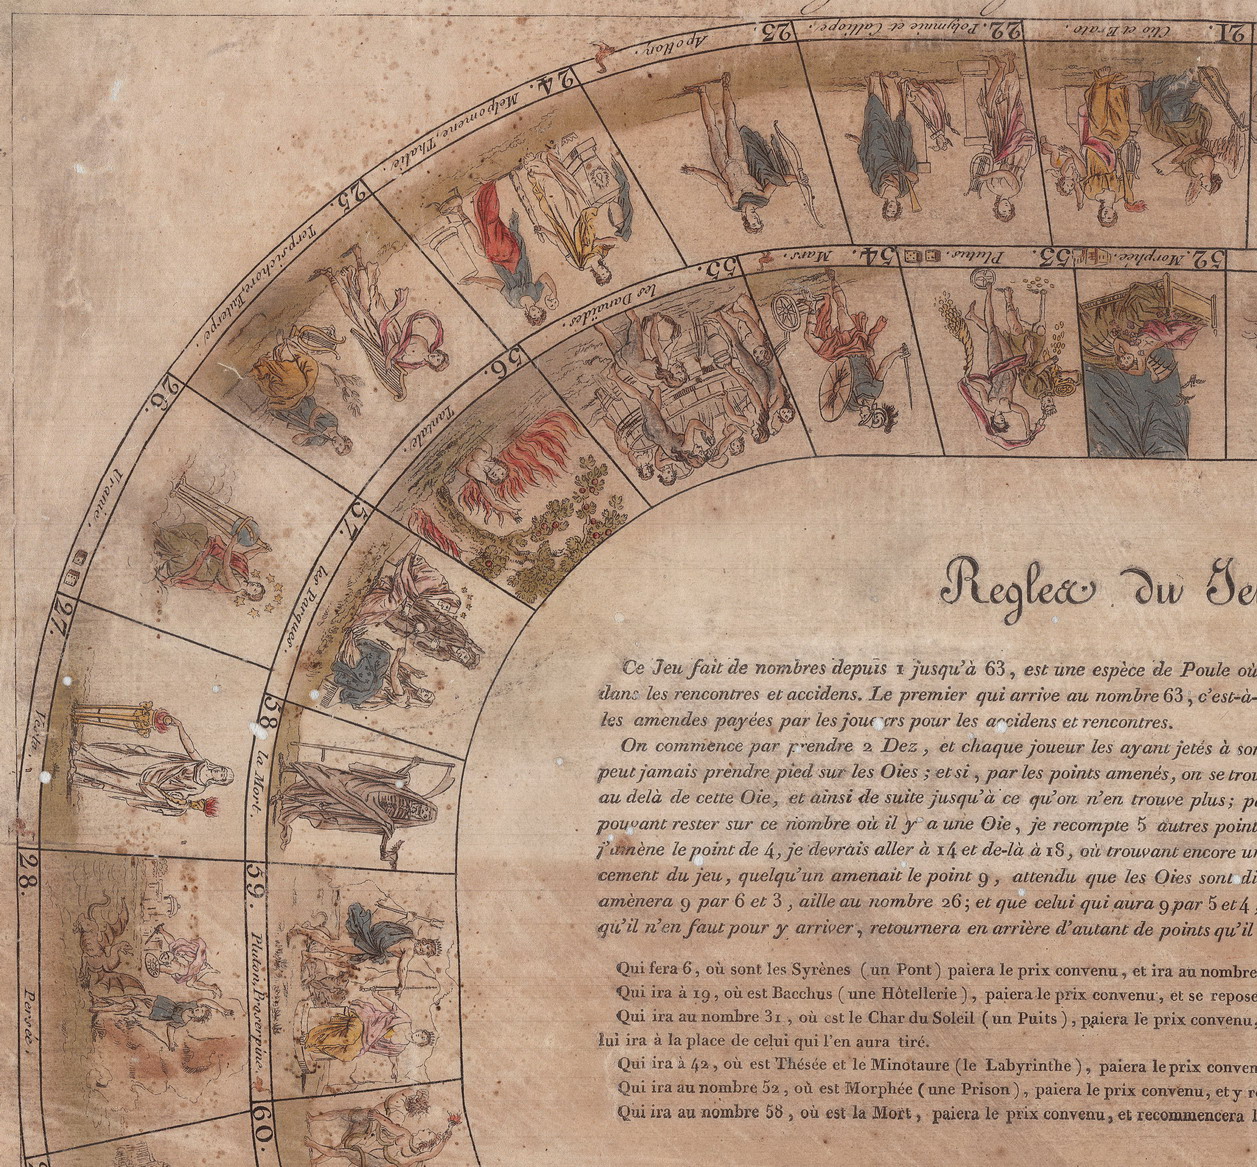 21.
Clio et Erato.
22.
Polymnie et Calliope.
23.
Apollon.
24.
Melpomene, Thalie.
25.
Terpsichore, Euterpe.
26.
Uranie.
27.
Vesta.
28.
Persée.
52.
Morphée.
53.
Plutus.
54.
Mars.
55.
les Danaides.
56.
Tantale.
57.
les Parques.
58.
la Mort.
59.
Pluton, Proserpine.
60.
Regles du Je
Ce Jeu fait de nombres depuis 1 jusqu'à 63, est une espèce de Poule où
dans les rencontres et accidens. Le premier qui arrive au nombre 63, c'est-à-
les amendes payées par les joueurs pour les accidens et rencontres.
On commence par prendre 2 Dez, et chaque joueur les ayant jetés à son
peut jamais prendre pied sur les Oies; et si, par les points amenés, on se trou
au delà de cette Oie, et ainsi de suite jusqu'à ce qu'on n'en trouve plus; pa
pouvant rester sur ce nombre où il y a une Oie, je recompte 5 autres point
j'amène le point de 4, je devrais aller à 14 et de-là à 18, où trouvant encore un
cement du jeu, quelqu'un amenait le point 9, attendu que les Oies sont di
amènera 9 par 6 et 3, aille au nombre 26; et que celui qui aura 9 par 5 et 4,
qu'il n'en faut pour y arriver, retournera en arrière d'autant de points qu'il
Qui fera 6, où sont les Syrènes (un Pont) paiera le prix convenu, et ira au nombre
Qui ira à 19, où est Bacchus (une Hôtellerie), paiera le prix convenu, et se repose
Qui ira au nombre 31, où est le Char du Soleil (un Puits), paiera le prix convenu,
lui ira à la place de celui qui l'en aura tiré.
Qui ira à 42, où est Thésée et le Minotaure (le Labyrinthe), paiera le prix conven
Qui ira au nombre 52, où est Morphée (une Prison), paiera le prix convenu, et y re
Qui ira au nombre 58, où est la Mort, paiera le prix convenu, et recommencera l